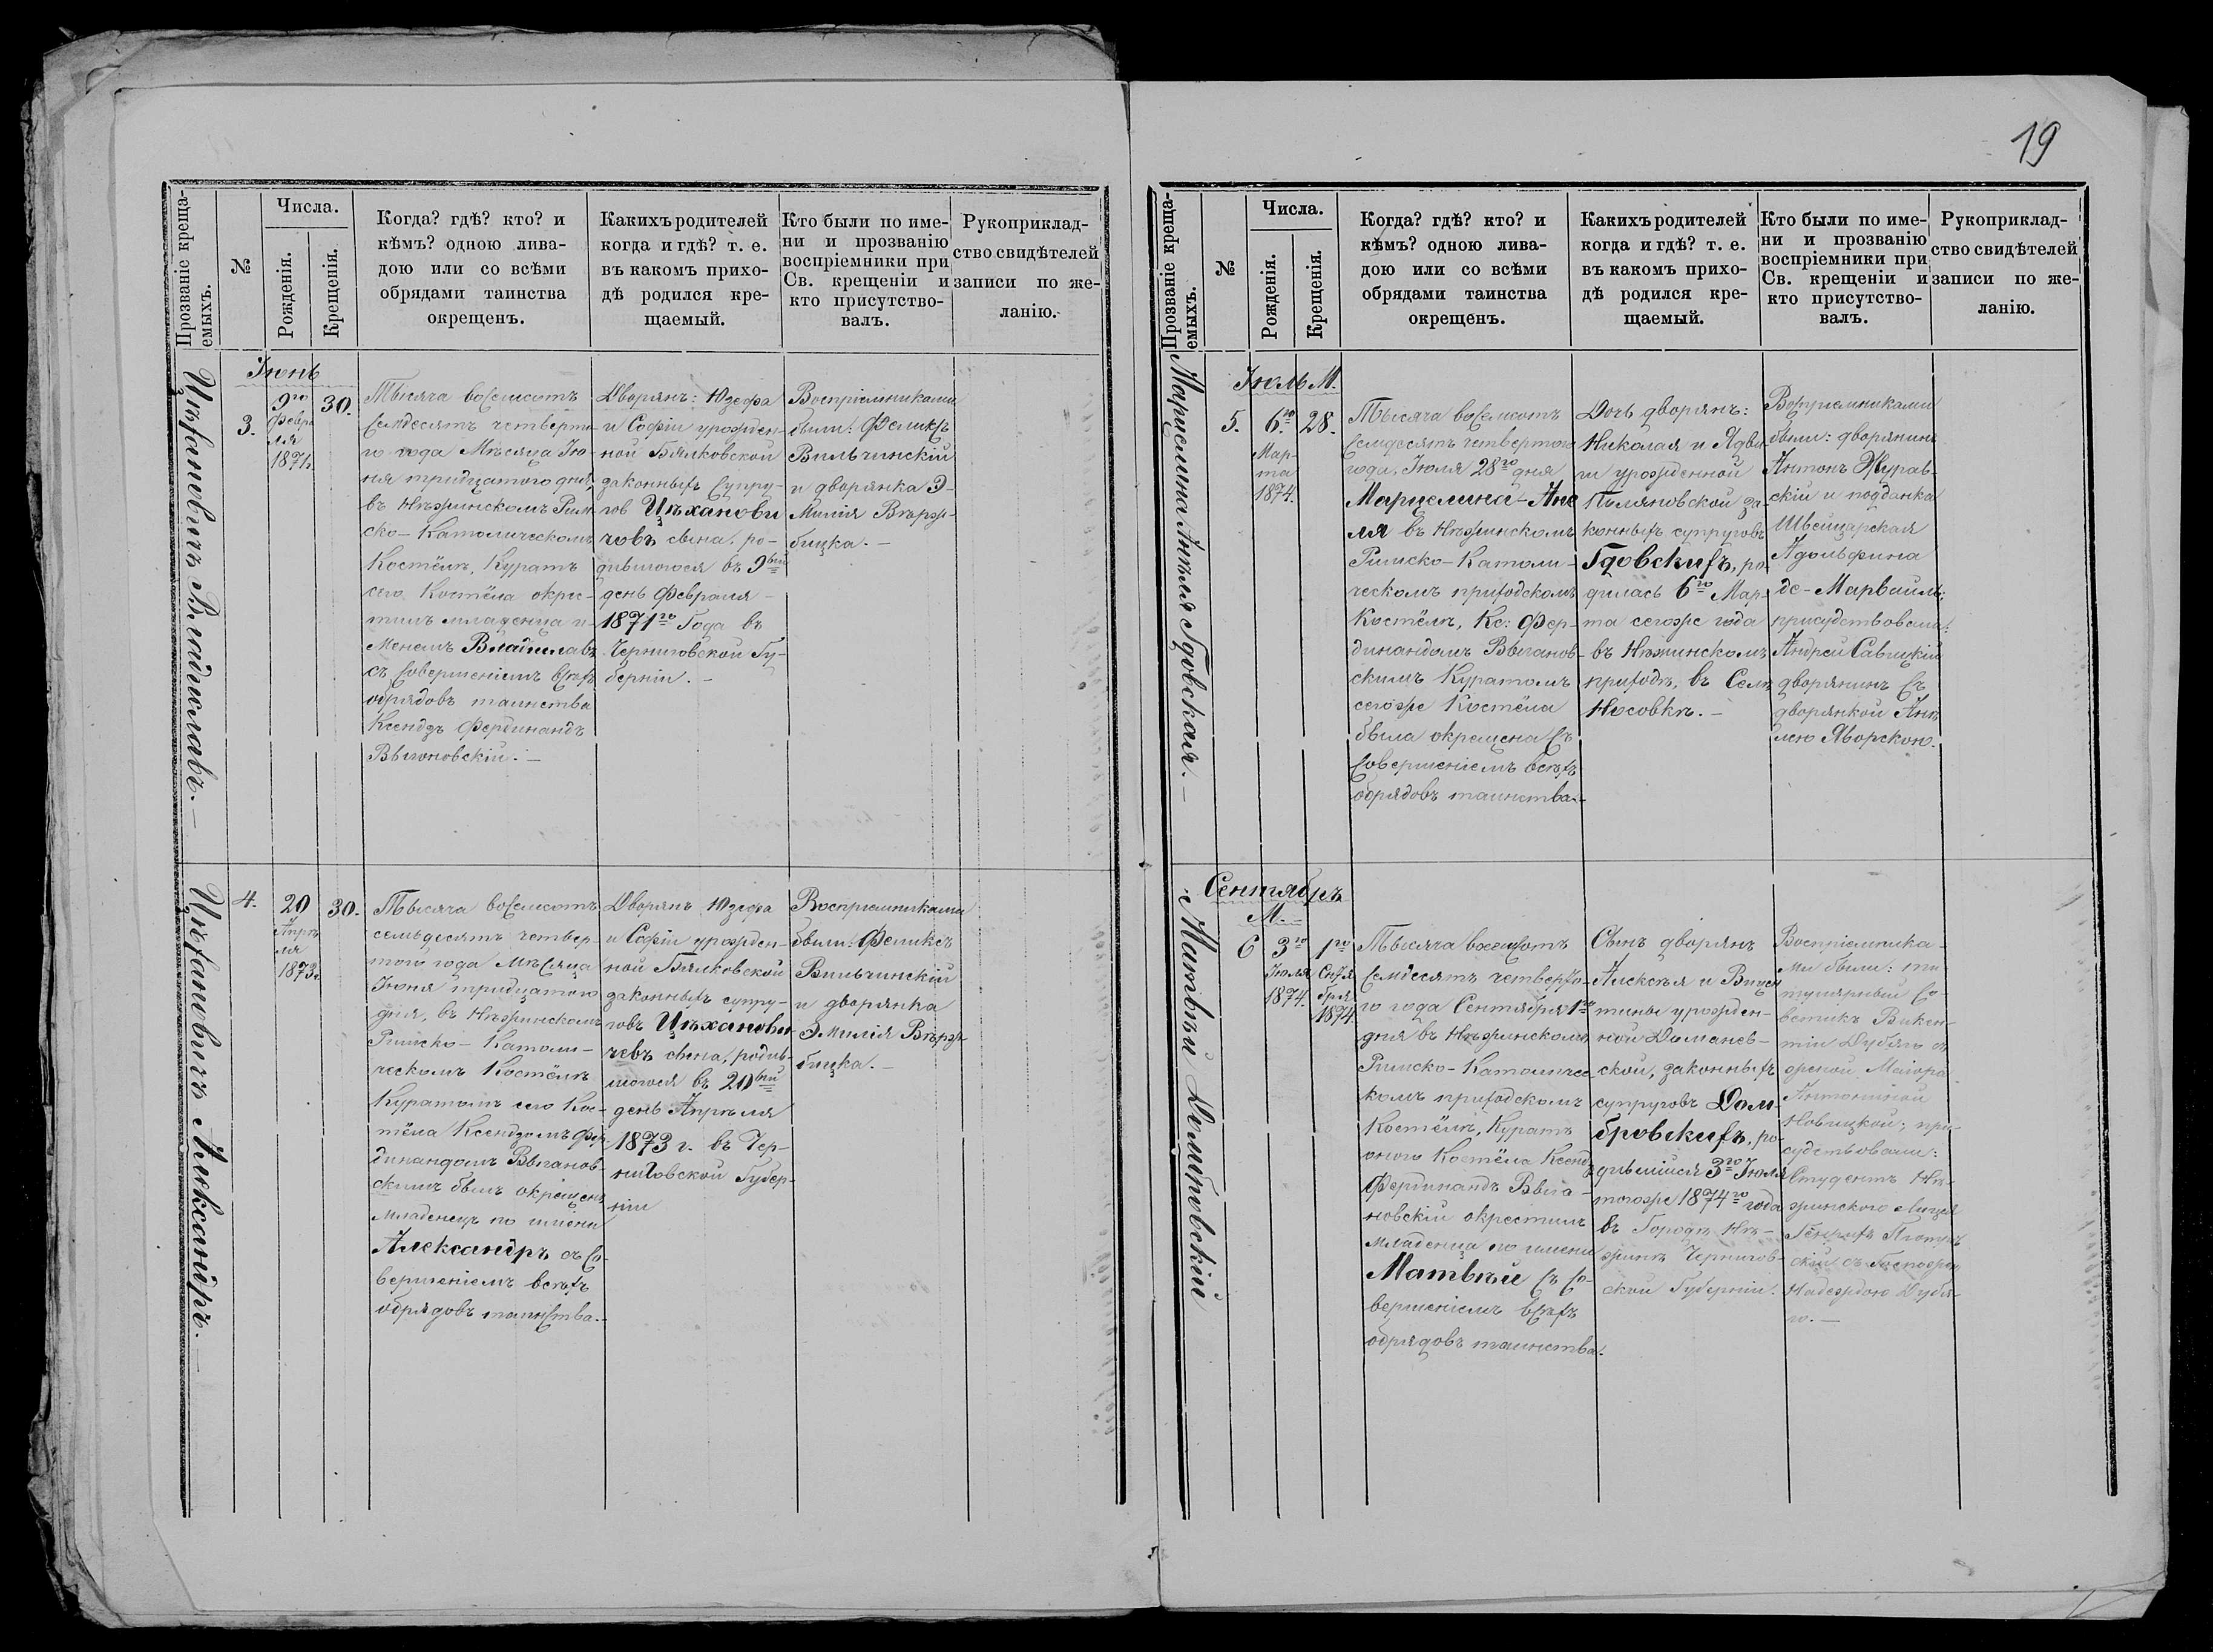 19
Прозваніе креща-
емыхъ.
№
Числа.
Рожденія.
Крещенія.
Когда? гдѣ? кто? и
кѣмъ? одною лива-
дою или со всѣми
обрядами таинства
окрещенъ.
Какихъ родителей
когда и гдѣ? т. е.
въ какомъ прихо-
дѣ родился кре-
щаемый.
Кто были по име-
ни и прозванію
воспріемники при
Св. крещеніи и
кто присутство-
валъ.
Рукоприклад-
ство свидѣтелей
записи по же-
ланію.
Цѣхановичъ Владиславъ.—
Іюнь
3.
9го
Февра
ля
1871.
30.
Тысяча восемсотъ
семдесятъ четверто-
го года Мѣсяца Ію-
ня тридцатого дня,
въ Нѣжинскомъ Рим-
ско-Католическомъ
Костёлѣ, Куратъ
сего Костёла окре-
стилъ младенца и-
менемъ Владиславъ
съ совершеніемъ всѣхъ
обрядовъ таинства
Ксендзъ Фердинандъ
Выгоновскій.—
Дворянъ: Юзефа
и Софіи урожден-
ной Бялковской
законныхъ супру-
говъ Цѣханови
човъ сына, ро-
дившогося въ 9ый
день Февраля
1871го Года въ
Черниговской Гу-
берніи.—
Воспріемниками
были: Феликсъ
Вильчинскій
и дворянка Э-
милія Вѣрж-
бицка.—
Цѣхановичъ Александръ.—
4.
20
Апрѣ
ля
1873г.
30.
Тысяча восемсотъ
семьдесятъ четвер-
того года мѣсяца
Іюня тридцатого
дня, въ Нѣжинскомъ
Римско-Католи-
ческомъ Костёлѣ
Куратомъ сего Кос-
тёла Ксендзомъ Фер-
динандомъ Выганов-
скимъ былъ окрещенъ
младенецъ по имени
Александръ съ со-
вершеніемъ всѣхъ
обрядовъ таинства.—
Дворянъ Юзефа
и Софіи урожден-
ной Бялковской
законныхъ супру-
говъ Цѣханови-
чевъ сына, родив-
шогося въ 20ый
день Апрѣля
1873 г. въ Чер-
ниговской Губер-
ніи
Воспріемниками
были: Феликсъ
Вильчинскій
и дворянка
Эмилія Вѣрж-
бицка.—
Прозваніе креща-
емыхъ.
№
Числа.
Рожденія.
Крещенія.
Когда? гдѣ? кто? и
кѣмъ? одною лива-
дою или со всѣми
обрядами таинства
окрещенъ.
Какихъ родителей
когда и гдѣ? т. е.
въ какомъ прихо-
дѣ родился кре-
щаемый.
Кто были по име-
ни и прозванію
воспріемники при
Св. крещеніи и
кто присутство-
валъ.
Рукоприклад-
ство свидѣтелей
записи по же-
ланію.
Марцелина Анѣля Гдовская.—
Іюль М.
5.
6го
Мар-
та
1874.
28.
Тысяча восемсотъ
семдесятъ четвертого
года, Іюля 28го дня
Марцелина-Анѣ
ля въ Нѣжинскомъ
Римско-Католи-
ческомъ приходскомъ
Костёлѣ, Кс: Фер-
динандомъ Выганов-
скимъ Куратомъ
сегоже Костёла
была окрещена съ
совершеніемъ всѣхъ
обрядовъ таинства.—
Дочь дворянъ:
Николая и Ядви
ги урожденной
Поляновской за-
конныхъ супруговъ
Гдовскихъ, ро-
дилась 6го Мар-
та сегоже года
въ Нѣжинскомъ
приходѣ, въ Селѣ
Носовкѣ.—
Воспріемниками
были: дворянинъ
Антонъ Журав-
скій и подданка
Швейцарская
Адольфина
де-Марвиль;
присудствовали:
Андрей Савицкій
дворянинъ съ
дворянкой Анѣ
лею Яворскою.
Матвѣй Домбровскій
Сентябрь
М.
6
3го
Іюля
1874.
1го
Сентя
бря
1874
Тысяча восемсотъ
семдесятъ четверто-
го года Сентября 1го
дня въ Нѣжинскомъ
Римско-Католичес
комъ приходскомъ
Костёлѣ, Куратъ
оного Костёла Ксендзъ
Фердинандъ Выга-
новскій окрестилъ
младенца по имени
Матвѣй съ со-
вершеніемъ всѣхъ
обрядовъ таинства.
Сынъ дворянъ
Алексѣя и Викен
тины урожден-
ной Доманев-
ской, законныхъ
супруговъ Дом-
бровскихъ, ро-
дившійся 3го Іюля
тогоже 1874го года
въ Городѣ Нѣ-
жинѣ Чернигов-
ской Губерніи.
Воспріемника-
ми были: ти-
тулярный со-
вѣтникъ Викен-
тій Дубяго съ
женой Маіора
Антониной
Новицкой; при-
судствовали:
Студентъ Нѣ-
жинского Лицея
съ Госпожею
Надеждою Дубя-
го.—